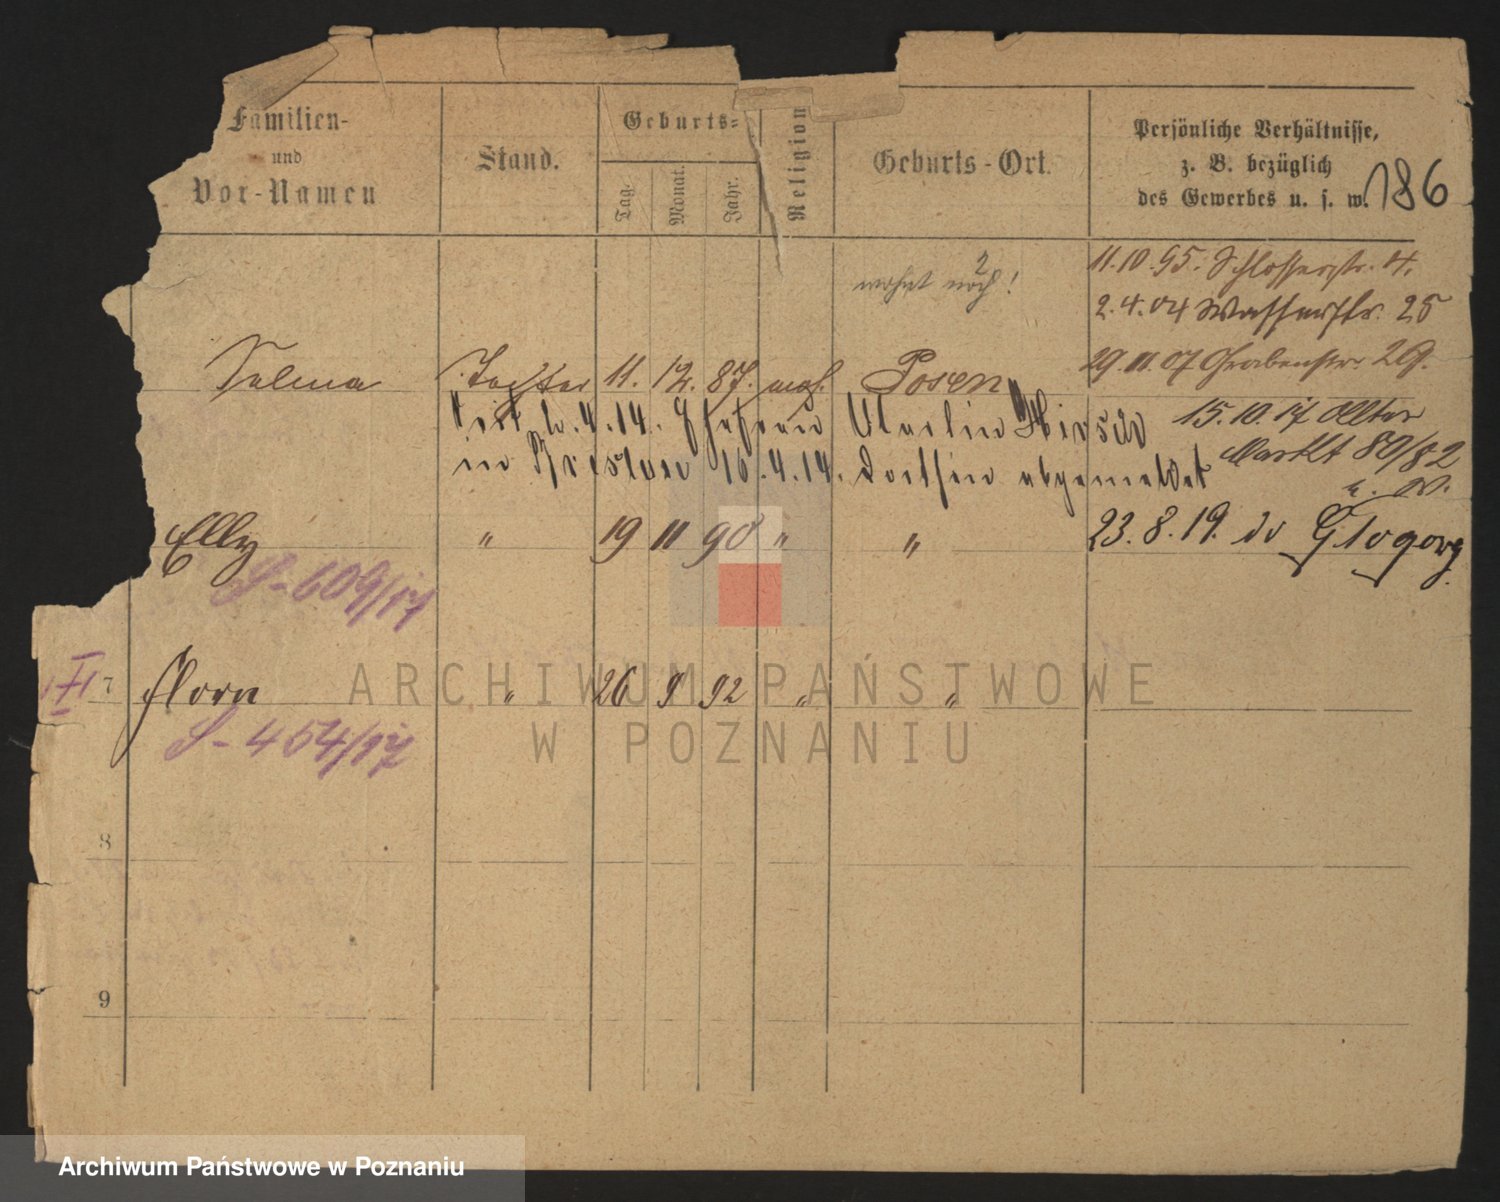 Familien-
und
Vor-Namen
Stand.
Geburts=
Tag.
Monat.
Jahr.
Religion
Geburts-Ort.
Persönliche Verhältnisse,
z. B. bezüglich
des Gewerbes u. s. w.
186
wohnt noch!
11.10.95. Schlosserstr. 4.
2.4.04 Wasserstr. 25
29.11.07 Grabenstr. 29.
Selma Tochter 11. 12. 87. mos. Posen
seit 2.4.14. Ehefrau Martin Hirsch
in Breslau 16.4.14. dorthin abgemeldet
15.10.17 Alter
Markt 80/82
Elly " 19 11 90 " "
23.8.19. do Glogau
S-609/17
7 Flora " 26 9 92 " "
S-454/17
8
9
ARCHIWUM PAŃSTWOWE
W POZNANIU
Archiwum Państwowe w Poznaniu